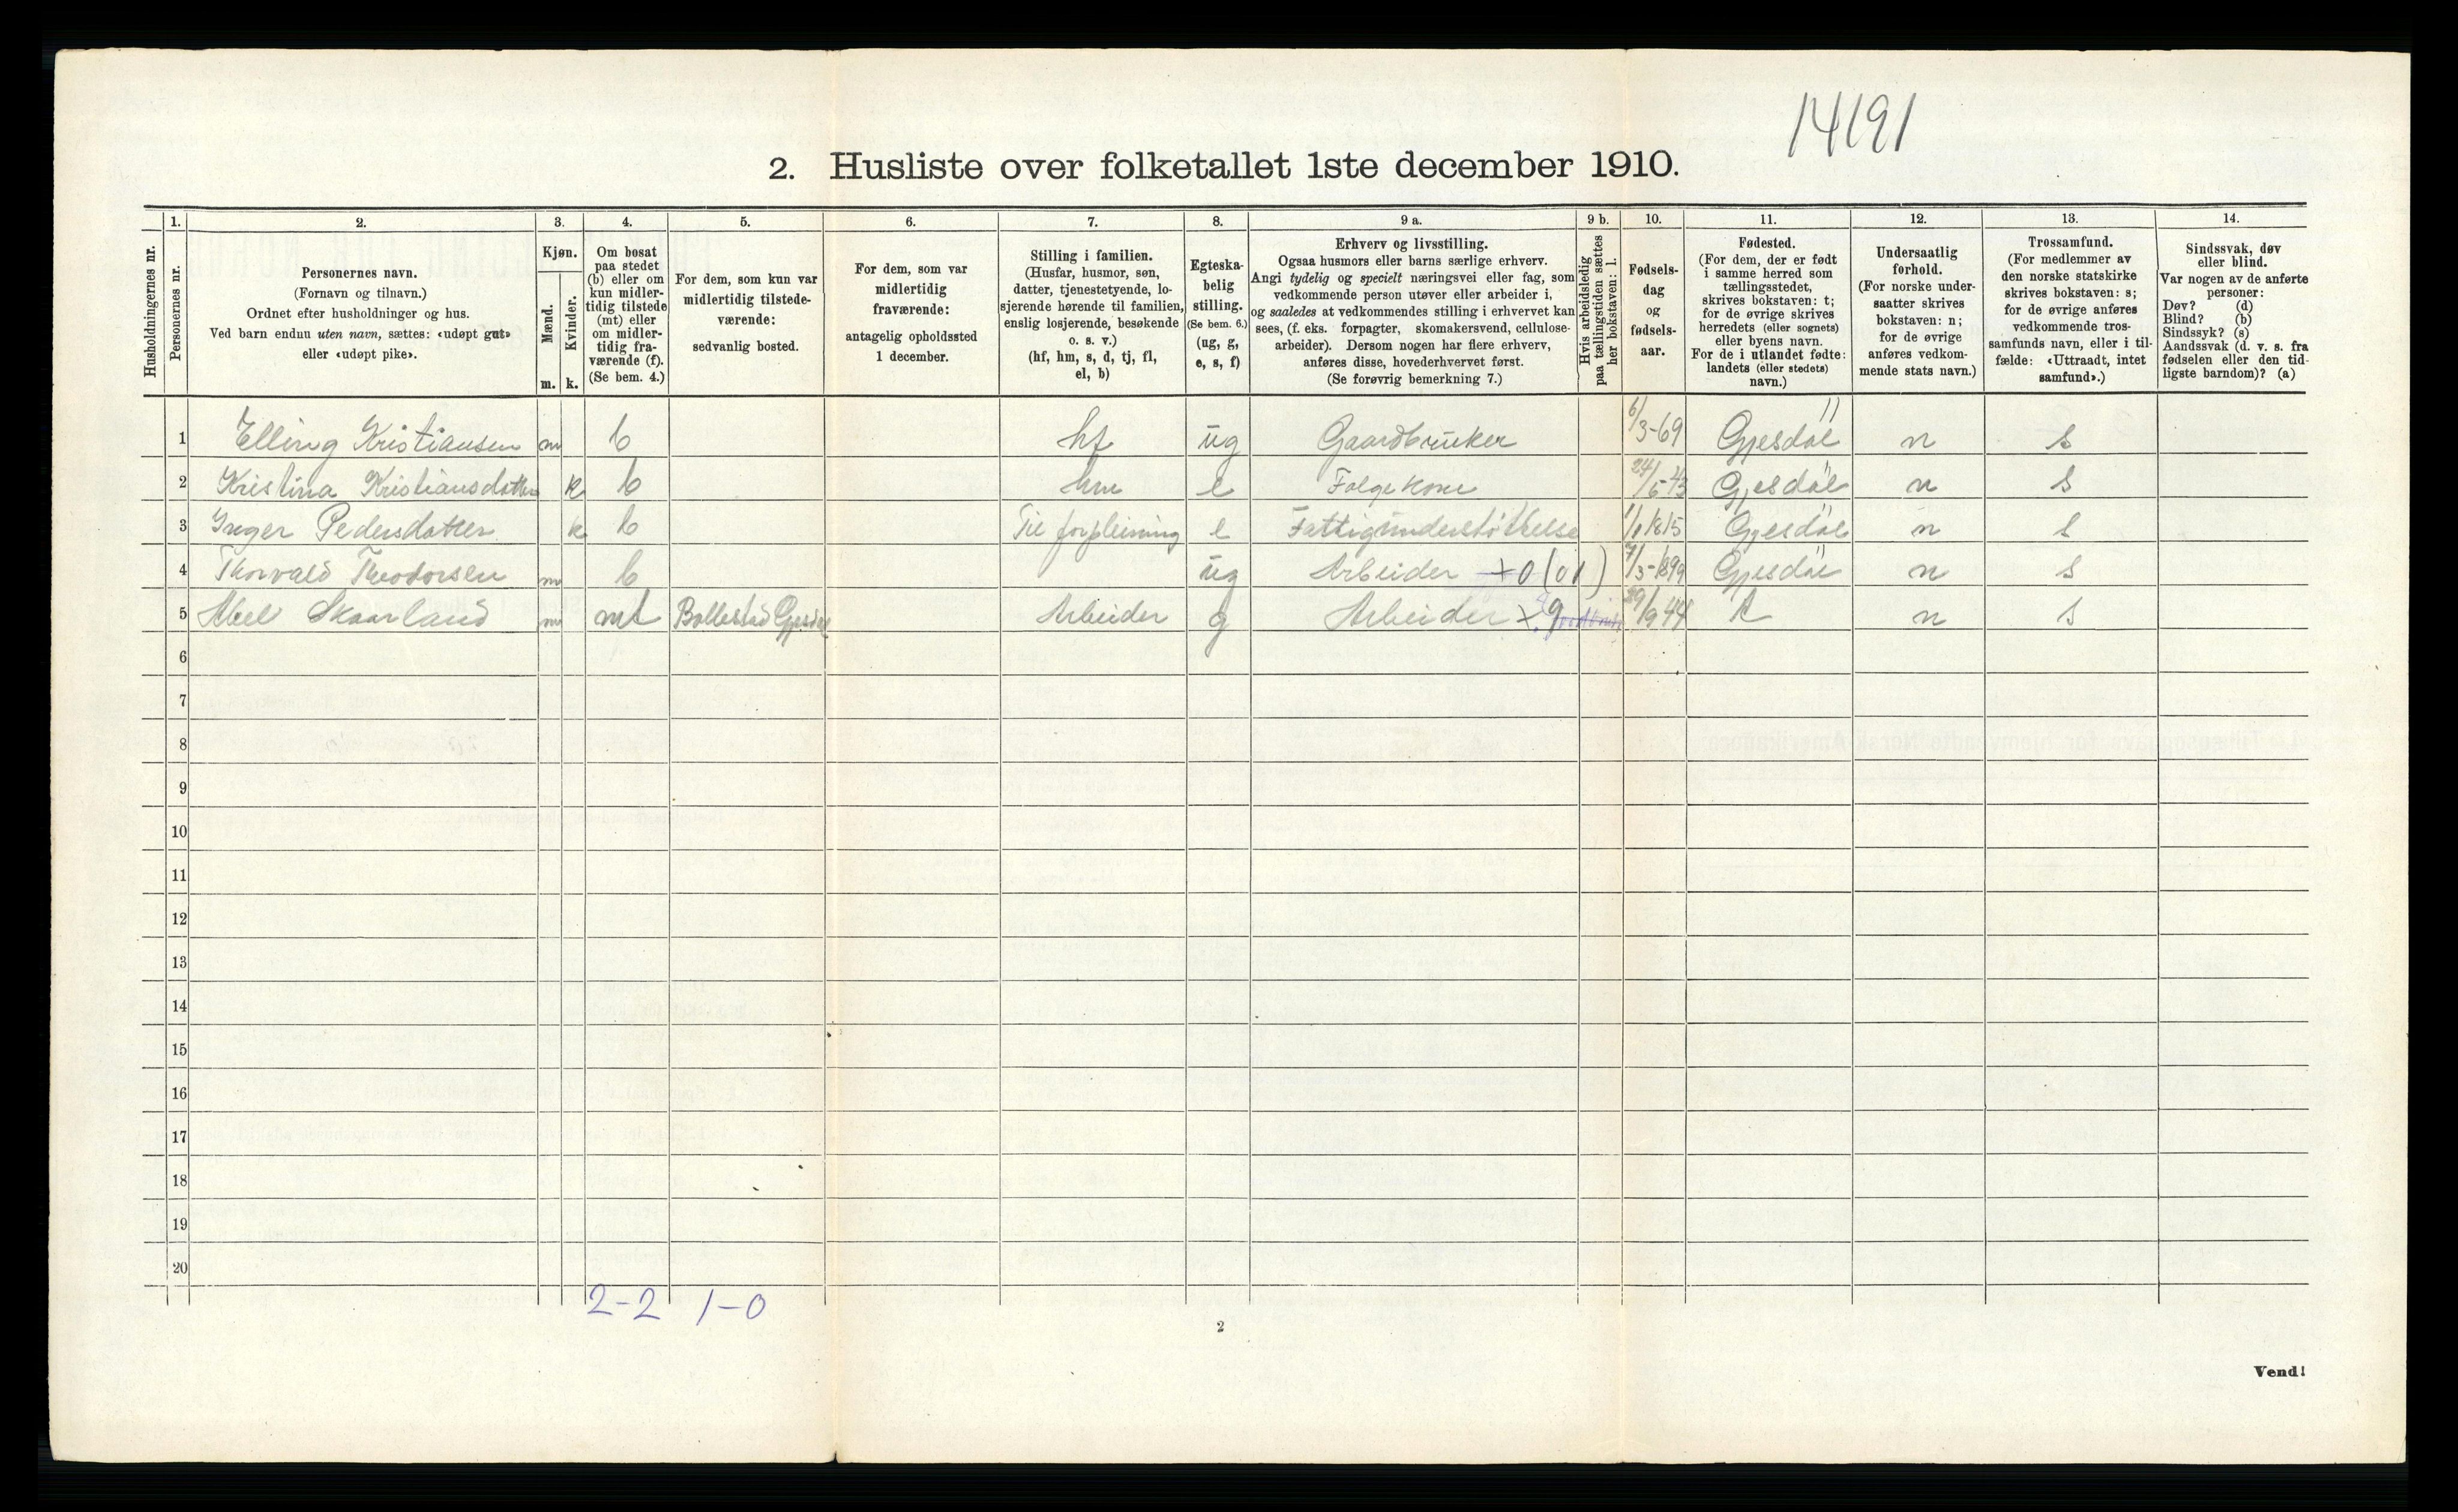 14191
2. Husliste over folketallet 1ste december 1910.
Husholdningernes nr.
1. Personernes nr.
2. Personernes navn.
(Fornavn og tilnavn.)
Ordnet efter husholdninger og hus.
Ved barn endnu uten navn, sættes: «udøpt gut»
eller «udøpt pike».
3. Kjøn.
Mænd. m.
Kvinder. k.
4. Om bosat
paa stedet
(b) eller om
kun midler-
tidig tilstede
(mt) eller
om midler-
tidig fra-
værende (f).
(Se bem. 4.)
5. For dem, som kun var
midlertidig tilstede-
værende:
sedvanlig bosted.
6. For dem, som var
midlertidig
fraværende:
antagelig opholdssted
1 december.
7. Stilling i familien.
(Husfar, husmor, søn,
datter, tjenestetyende, lo-
sjerende hørende til familien,
enslig losjerende, besøkende
o. s. v.)
(hf, hm, s, d, tj, fl,
el, b)
8. Egteska-
belig
stilling.
(Se bem. 6.)
(ug, g,
e, s, f)
9 a. Erhverv og livsstilling.
Ogsaa husmors eller barns særlige erhverv.
Angi tydelig og specielt næringsvei eller fag, som
vedkommende person utøver eller arbeider i,
og saaledes at vedkommendes stilling i erhvervet kan
sees, (f. eks. forpagter, skomakersvend, cellulose-
arbeider). Dersom nogen har flere erhverv,
anføres disse, hovederhvervet først.
(Se forøvrig bemerkning 7.)
9 b. Hvis arbeidsledig
paa tællingstiden sættes
her bokstaven: l.
10. Fødsels-
dag
og
fødsels-
aar.
11. Fødested.
(For dem, der er født
i samme herred som
tællingsstedet,
skrives bokstaven: t;
for de øvrige skrives
herredets (eller sognets)
eller byens navn.
For de i utlandet fødte:
landets (eller stedets)
navn.)
12. Undersaatlig
forhold.
(For norske under-
saatter skrives
bokstaven: n;
for de øvrige
anføres vedkom-
mende stats navn.)
13. Trossamfund.
(For medlemmer av
den norske statskirke
skrives bokstaven: s;
for de øvrige anføres
vedkommende tros-
samfunds navn, eller i til-
fælde: «Uttraadt, intet
samfund».)
14. Sindssvak, døv
eller blind.
Var nogen av de anførte
personer:
Døv? (d)
Blind? (b)
Sindssyk? (s)
Aandssvak (d. v. s. fra
fødselen eller den tid-
ligste barndom)? (a)
1 Elling Kristiansen m b hf ug Gaardbruker 6/3-69 Gjesdal n s
2 Kristina Kristiansdatter k b hm e Folgekone 24/6-43 Gjesdal n s
3 Inger Pedersdatter k b Til forpleining e Fattigunderstøttelse 1/1 1815 Gjesdal n s
4 Thorvald Theodorsen m b ug Arbeider +0 (01) 7/3-1899 Gjesdal n s
5 Abel Skaarland m mt Bollestad Gjesdal Arbeider g Arbeider 29/9 44 t n s
6
7
8
9
10
11
12
13
14
15
16
17
18
19
20
2-2 1-0
2
Vend!